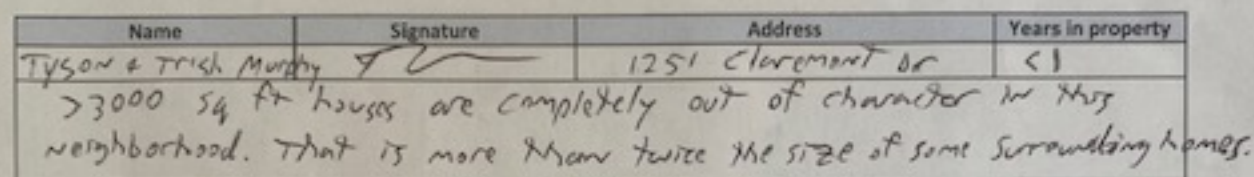 Name Signature Address Years in property
Tyson & Trish Murphy 1251 Claremont Dr <1
>3000 sq ft houses are completely out of character in this
neighborhood. That is more than twice the size of some surrounding homes.